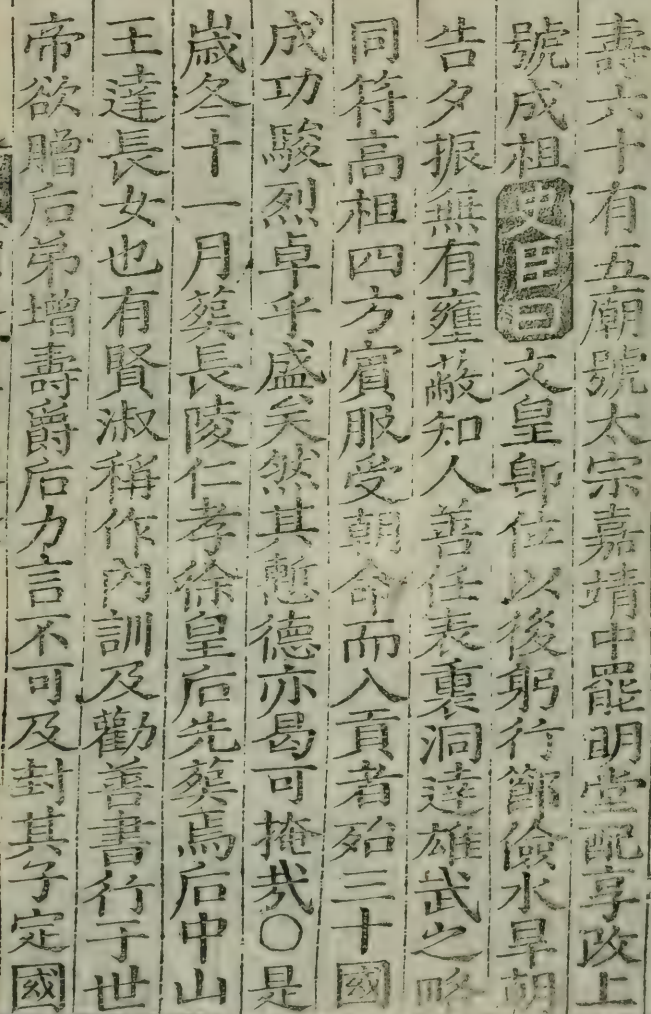 壽六十有五廟號太宗嘉靖中罷明堂配享改上
號成祖史臣曰文皇卽位以後躬行節儉水旱朝
告夕振無有壅蔽知人善任表裏洞達雄武之略
同符高祖四方賓服受朝命而入貢者殆三十國
成功駿烈卓乎盛矣然其慙德亦曷可掩㢤○是
歲冬十一月葬長陵仁孝徐皇后先葬焉后中山
王達長女也有賢淑稱作內訓及勸善書行于世
帝欲贈后弟增壽爵后力言不可及封其子定國